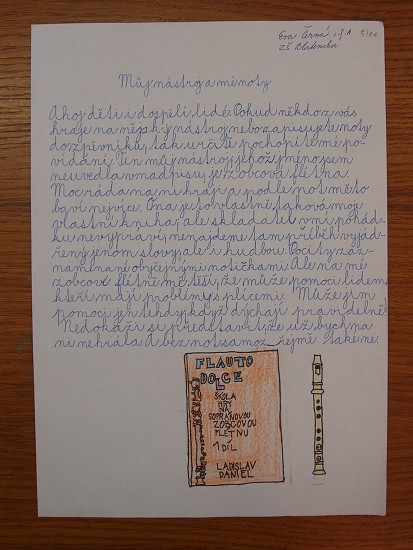 Eva Černá
ZŠ
Můj nástroj a mé noty
Ahoj děti i dospělí, lidé. Pokud někdo z vás
hraje na nějaký nástroj nebo zapisujete noty
do zpěvníku, tak určitě pochopíte mé po-
vídání. Ten můj nástroj jehož jméno jsem
neuvedla v nadpisu je zobcová flétna.
Moc ráda na ni hraji a podle not mě to
baví nejvíce. Ona je to vlastně taková moje
vlastní kniha, ale skladatel v ní pohád-
ku nevypráví, nenajdeme tam příběh vyjád-
řený jenom slovy, ale i hudbou. Pocity zaz-
namenané obyčejnými notičkami. Ale na mé
zobcové flétně mě těší, že může pomoci lidem,
kteří mají problémy s plícemi. Může jim
pomoci jen tehdy, když dýchají pravidelně.
Nedokáži si představit, že už bych na
ni nehrála. A bez not samoz řejmě také ne.
FLAUTO
DOLCE
ŠKOLA
HRY
NA
SOPRÁNOVOU
ZOBCOVOU
FLÉTNU
1 DÍL
LADISLAV
DANIEL